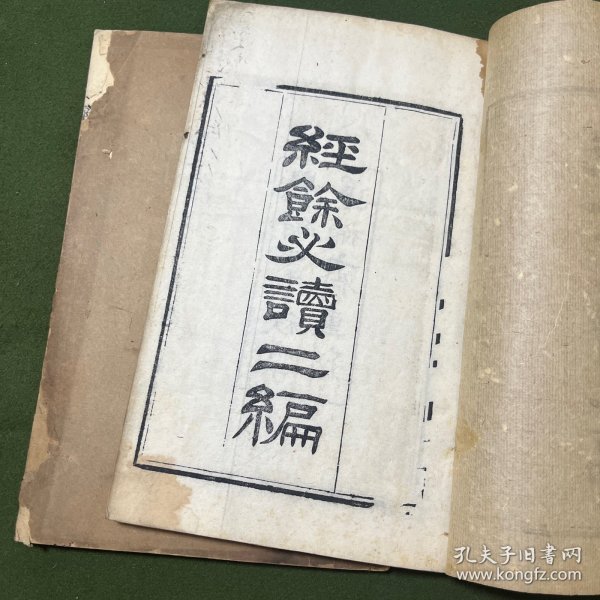 經餘必讀二編
孔夫子旧书网
www.kongfz.com